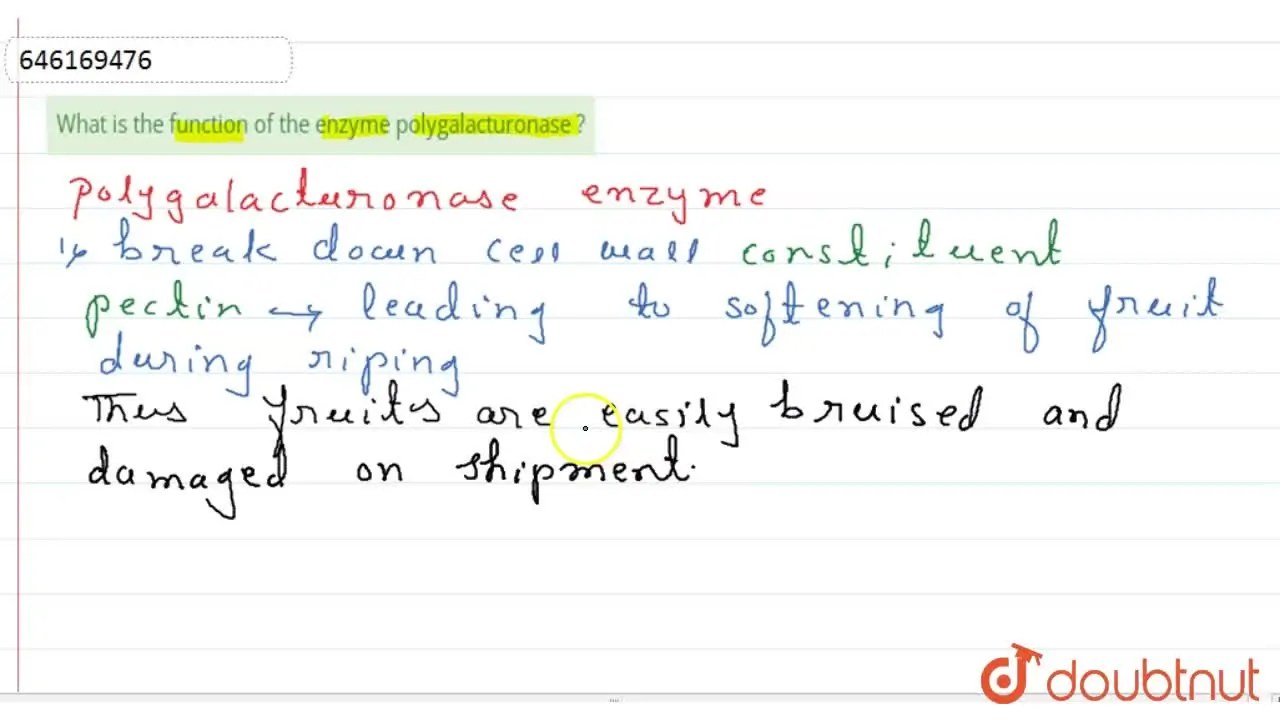 646169476
What is the function of the enzyme polygalacturonase ?
polygalacturonase enzyme
break down cell wall constituent
pectin → leading to softening of fruit
during riping
Thus fruits are easily bruised and
damaged on shipment.
doubtnut